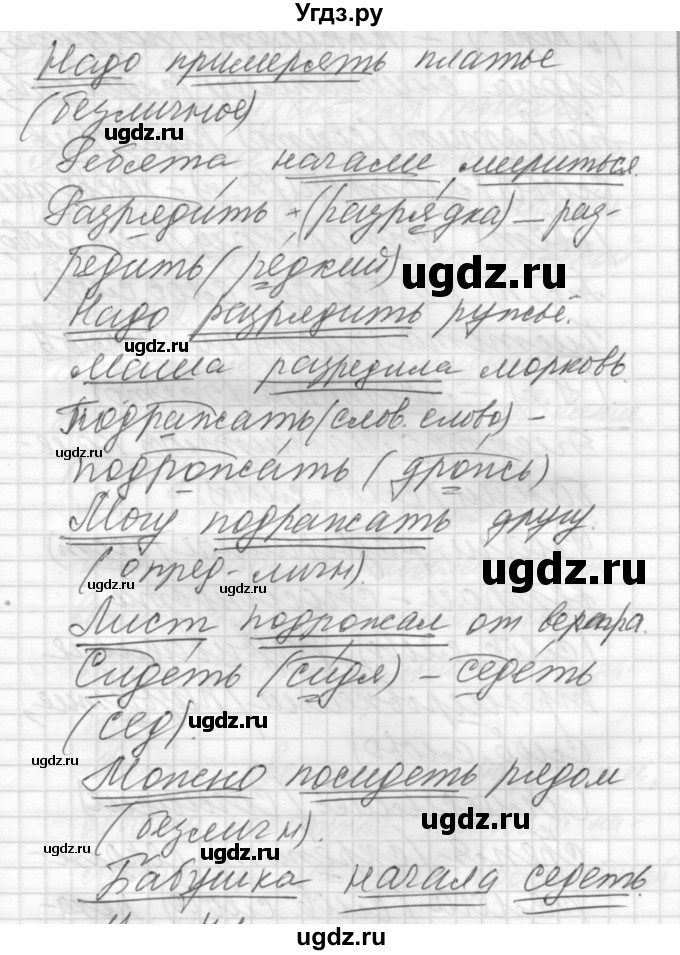 Угдз.ру
Надо примерять платье
(безличное)
ugdz.ru
Ребята начали мериться.
Разрядить - (разрядка) – раз-
редить (редкий)
ugdz.ru
Надо разрядить ружьё.
ugdz.ru
Маша разредила морковь
Подражать (слов. слово) –
ugdz.ru
подрожать (дрожь)
Могу подражать другу.
(опред-личн).
ugdz.ru
ugdz.ru
ugdz.ru
Лист подрожал от ветра.
Сидеть (сидя) – седеть
(сед).
ugdz.ru
ugdz.ru
Можно посидеть рядом
(безличн).
ugdz.ru
ugdz.ru
ugdz.ru
Бабушка начала седеть.
ugdz.ru